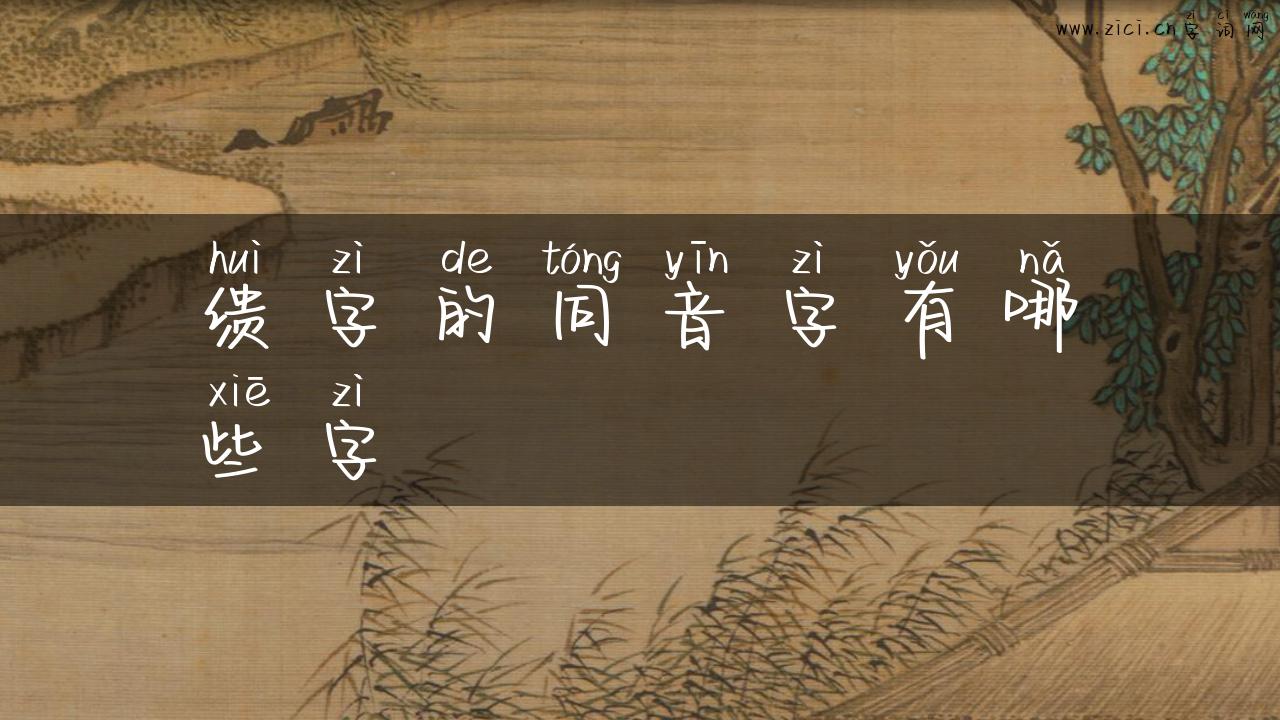 zì cí wǎng
www.zici.cn字词网
huì zì de tóng yīn zì yǒu nǎ
缋字的同音字有哪
xiē zì
些字